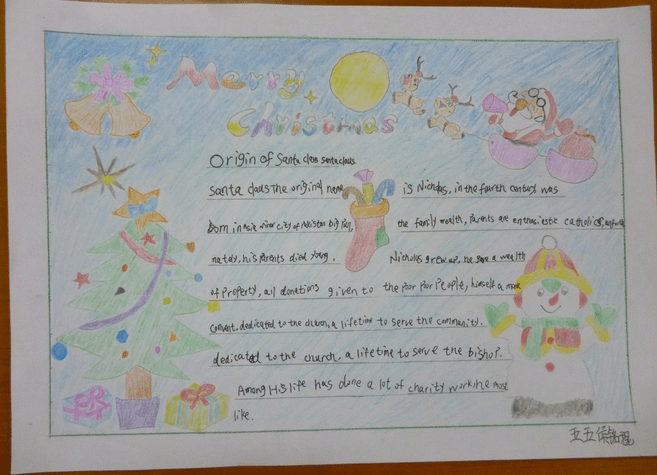 Merry
Christmas
Origin of Santa claus santa claus
santa claus The original name is Nicholas, in the fourth century was
Born in asia minor city of the family wealth, parents are enthusiastic catholics,
nately, his parents died young. Nicholas grew up, he gave a wealth
of property, all donations given to the poor poor People, himself a monk
Convent, dedicated to the church, a lifetime to serve the community.
dedicated to the church, a lifetime to serve the bishop.
Among His life has done a lot of charity work, he most
like.
五五